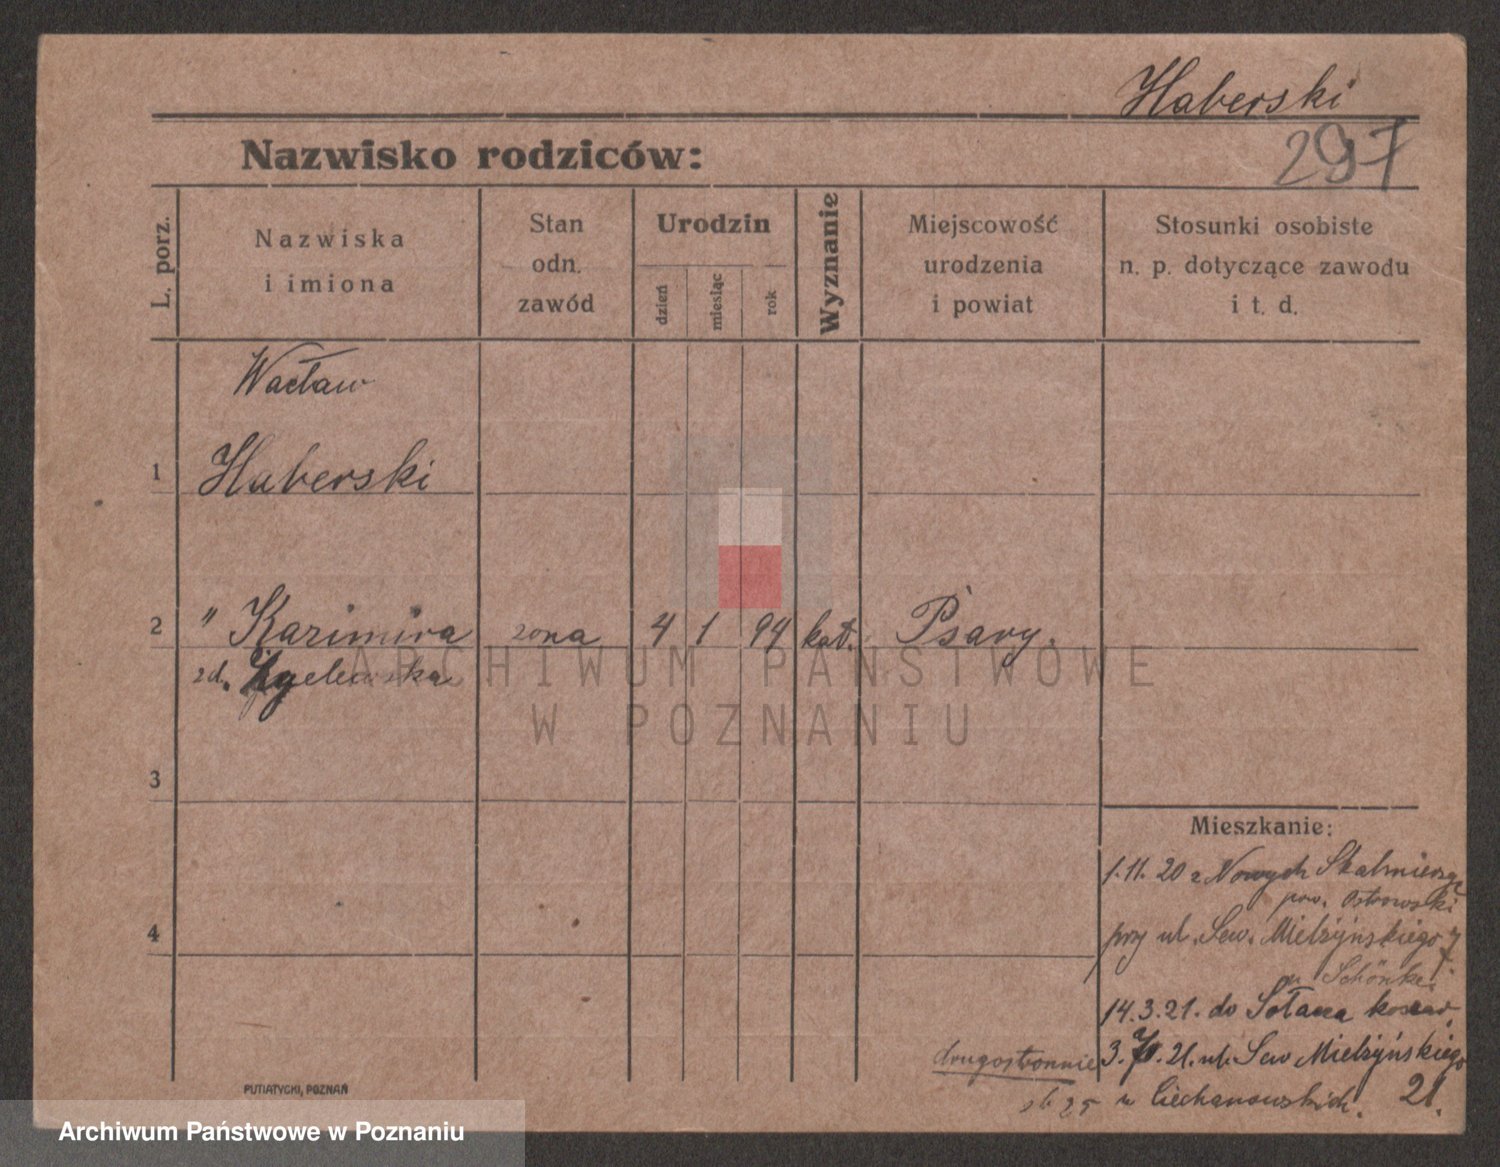 Haberski
297
Nazwisko rodziców:
L. porz.
Nazwiska
i imiona
Stan
odn.
zawód
Urodzin
dzień
miesiąc
rok
Wyznanie
Miejscowość
urodzenia
i powiat
Stosunki osobiste
n. p. dotyczące zawodu
i t. d.
Wacław
1 Haberski
2 " Kazimira żona 4 1 94 kat. Psary.
zd.
3
4
ARCHIWUM PAŃSTWOWE
W POZNANIU
Mieszkanie:
1.11.20 z Nowych
pow. Ostrowski
przy ul. Sew. Mielżyńskiego
u Schönke.
14.3.21. do Sołacza
3. 21. ul. Sew Mielżyńskiego
drugostronnie
u Ciechanowskich. 21.
PUTIATYCKI, POZNAŃ
Archiwum Państwowe w Poznaniu